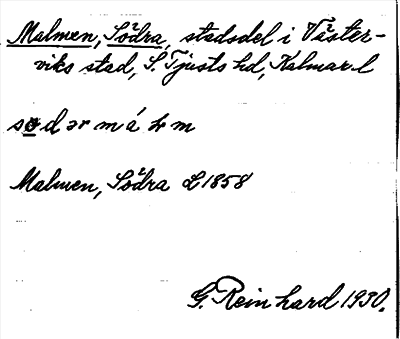 Malmen, Södra, stadsdel i Väster-
viks stad, S. Tjusts hd, Kalmar l
Malmen, Södra L 1858
G. Reinhard 1930.